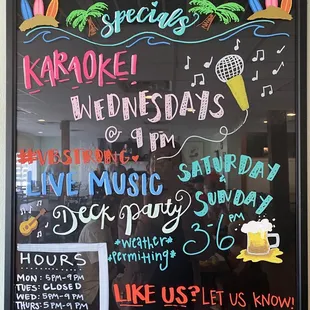 Specials
KARAOKE!
WEDNESDAYS
@ 9 PM
#VBSTRONG
LIVE MUSIC
SATURDAY
&
SUNDAY
3-6 PM
Deck Party
*weather*
*permitting*
HOURS
MON: 5PM-9PM
TUES: CLOSED
WED: 5PM-9PM
THURS: 5PM-9PM
LIKE US? LET US KNOW!